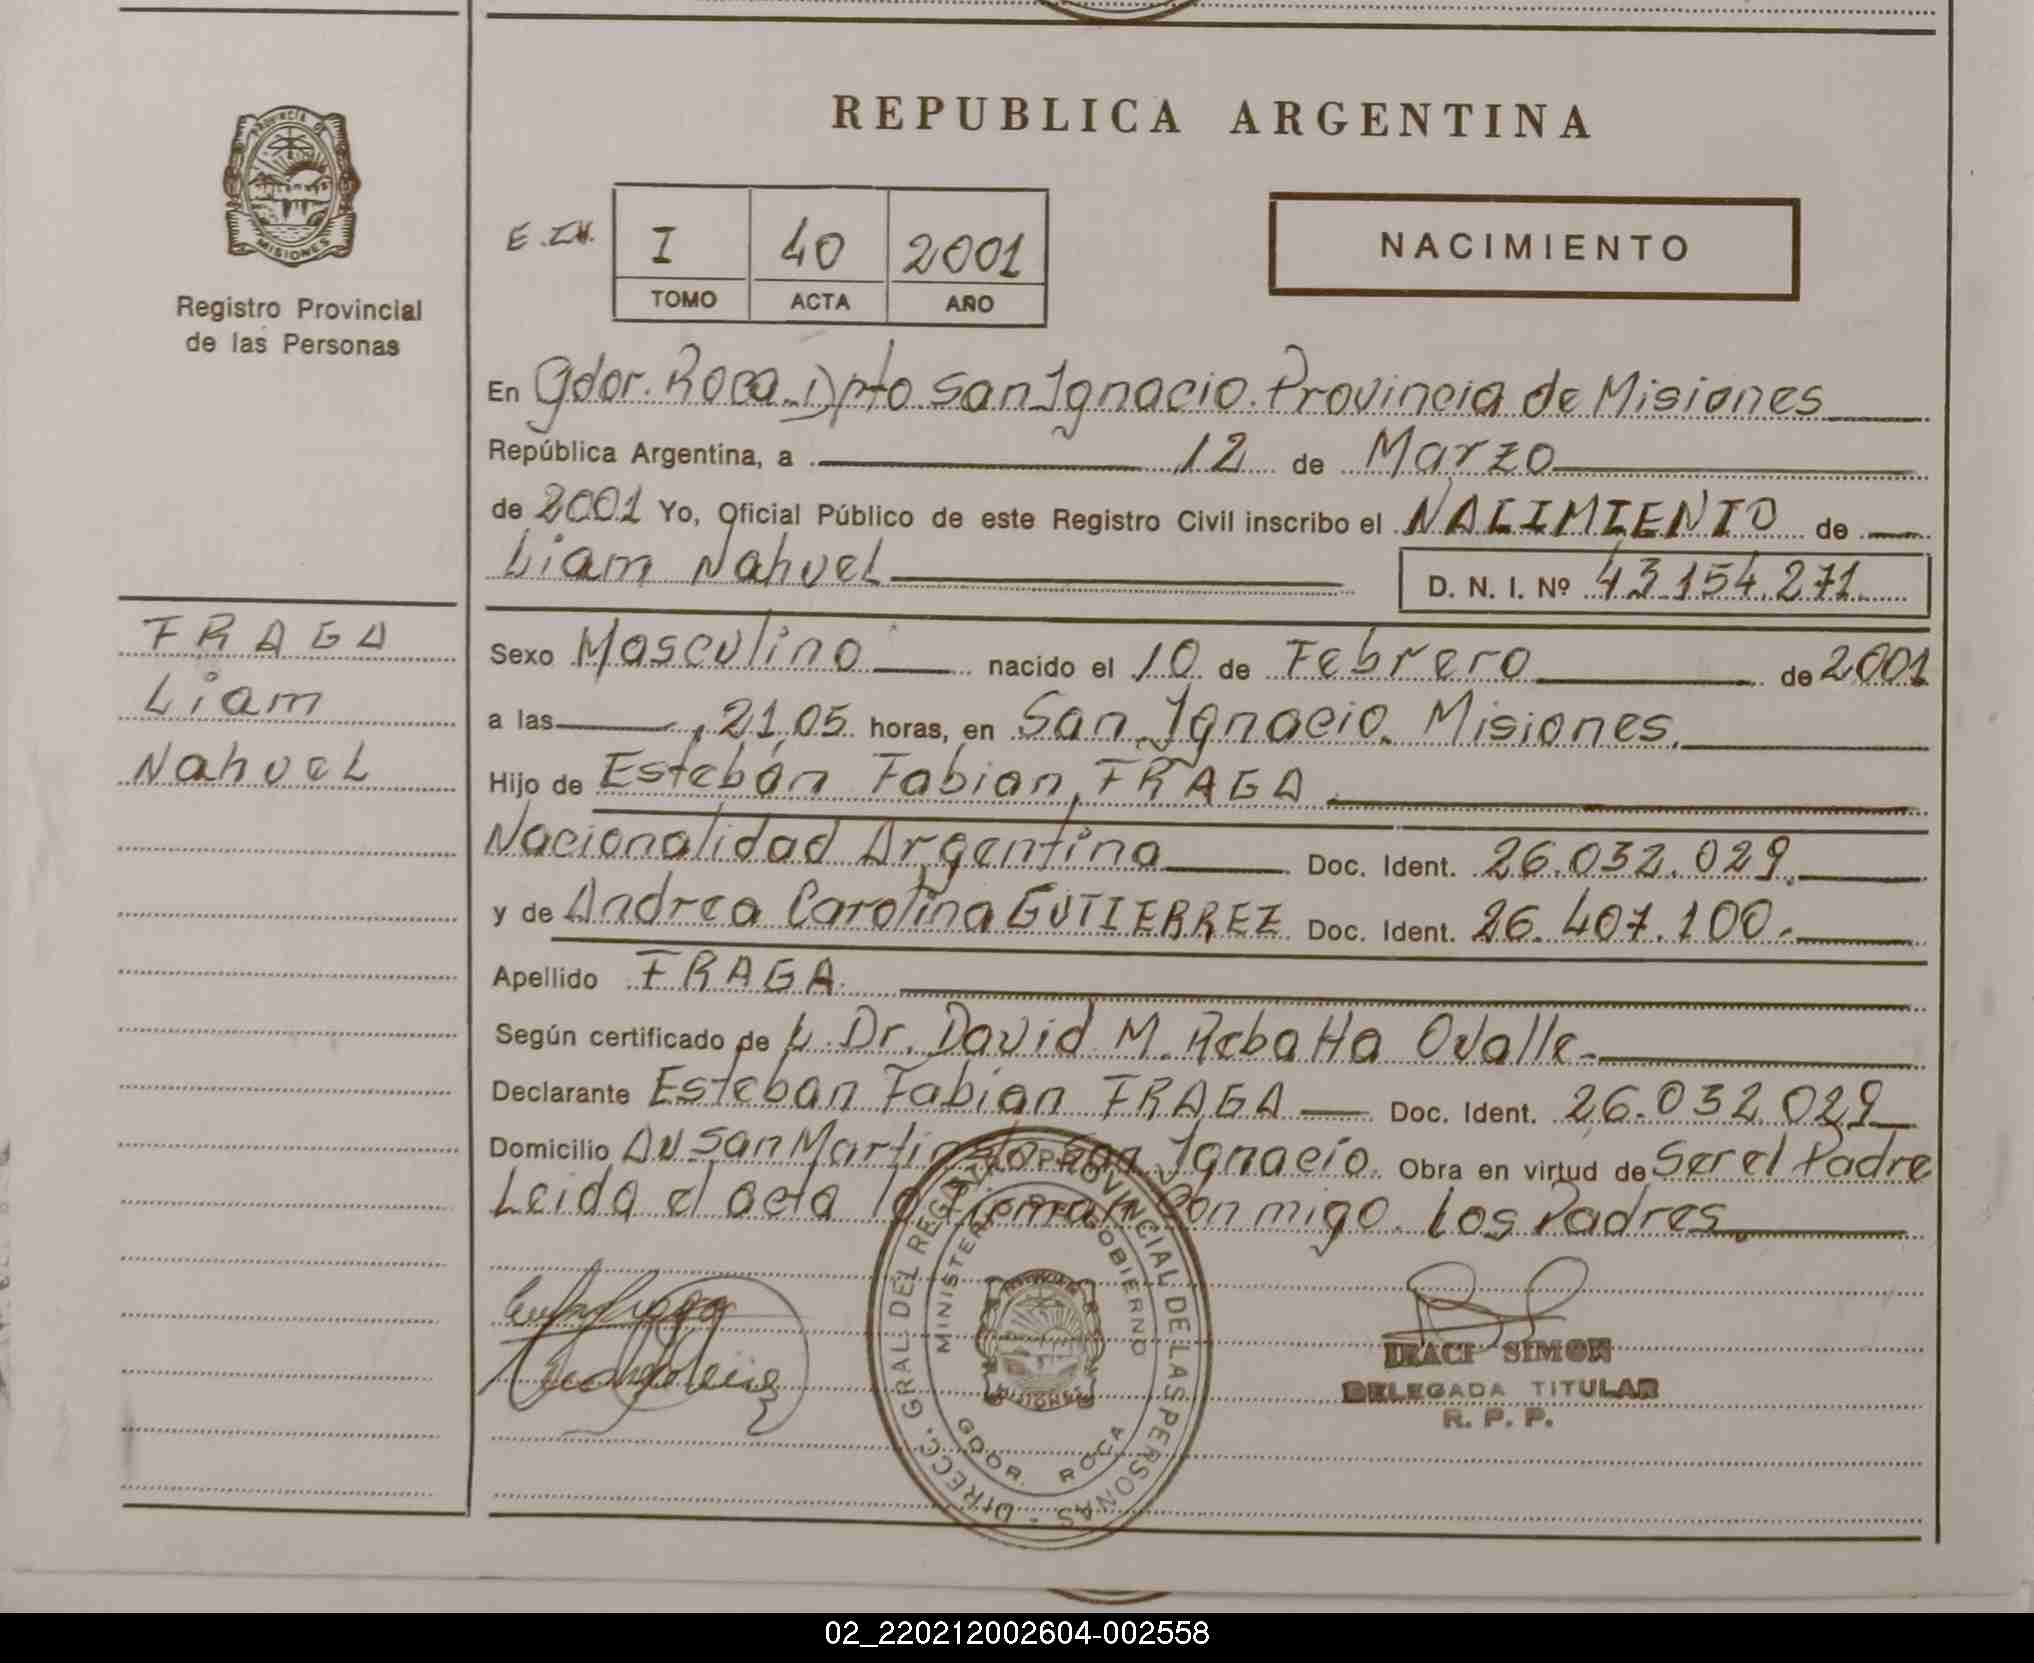 REPUBLICA ARGENTINA
PROVINCIA DE MISIONES
Registro Provincial
de las Personas
E.
I 40 2001
TOMO ACTA AÑO
NACIMIENTO
En Gdor. Roca. Dpto San Ignacio. Provincia de Misiones
República Argentina, a 12 de Marzo
de 2001 Yo, Oficial Público de este Registro Civil inscribo el NACIMIENTO de
Liam Nahuel D. N. I. Nº 43.154.271
FRAGA
Liam
Nahuel
Sexo Masculino nacido el 10 de Febrero de 2001
a las 21,05 horas, en San Ignacio. Misiones.
Hijo de Esteban Fabian FRAGA
Nacionalidad Argentina Doc. Ident. 26.032.029.
y de Andrea Carolina GUTIERREZ Doc. Ident. 26.407.100.
Apellido FRAGA
Según certificado de Dr. David M. Rebatta Ovalle
Declarante Esteban Fabian FRAGA Doc. Ident. 26.032.029
Domicilio Av San Martin San Ignacio. Obra en virtud de Ser el Padre
Leida el acta la firman conmigo. Los Padres
DIRECC. GRAL. DEL REGISTRO PROVINCIAL DE LAS PERSONAS
MINISTERIO DE GOBIERNO
MISIONES
GDOR. ROCA
IRACI SIMON
DELEGADA TITULAR
R. P. P.
02_220212002604-002558